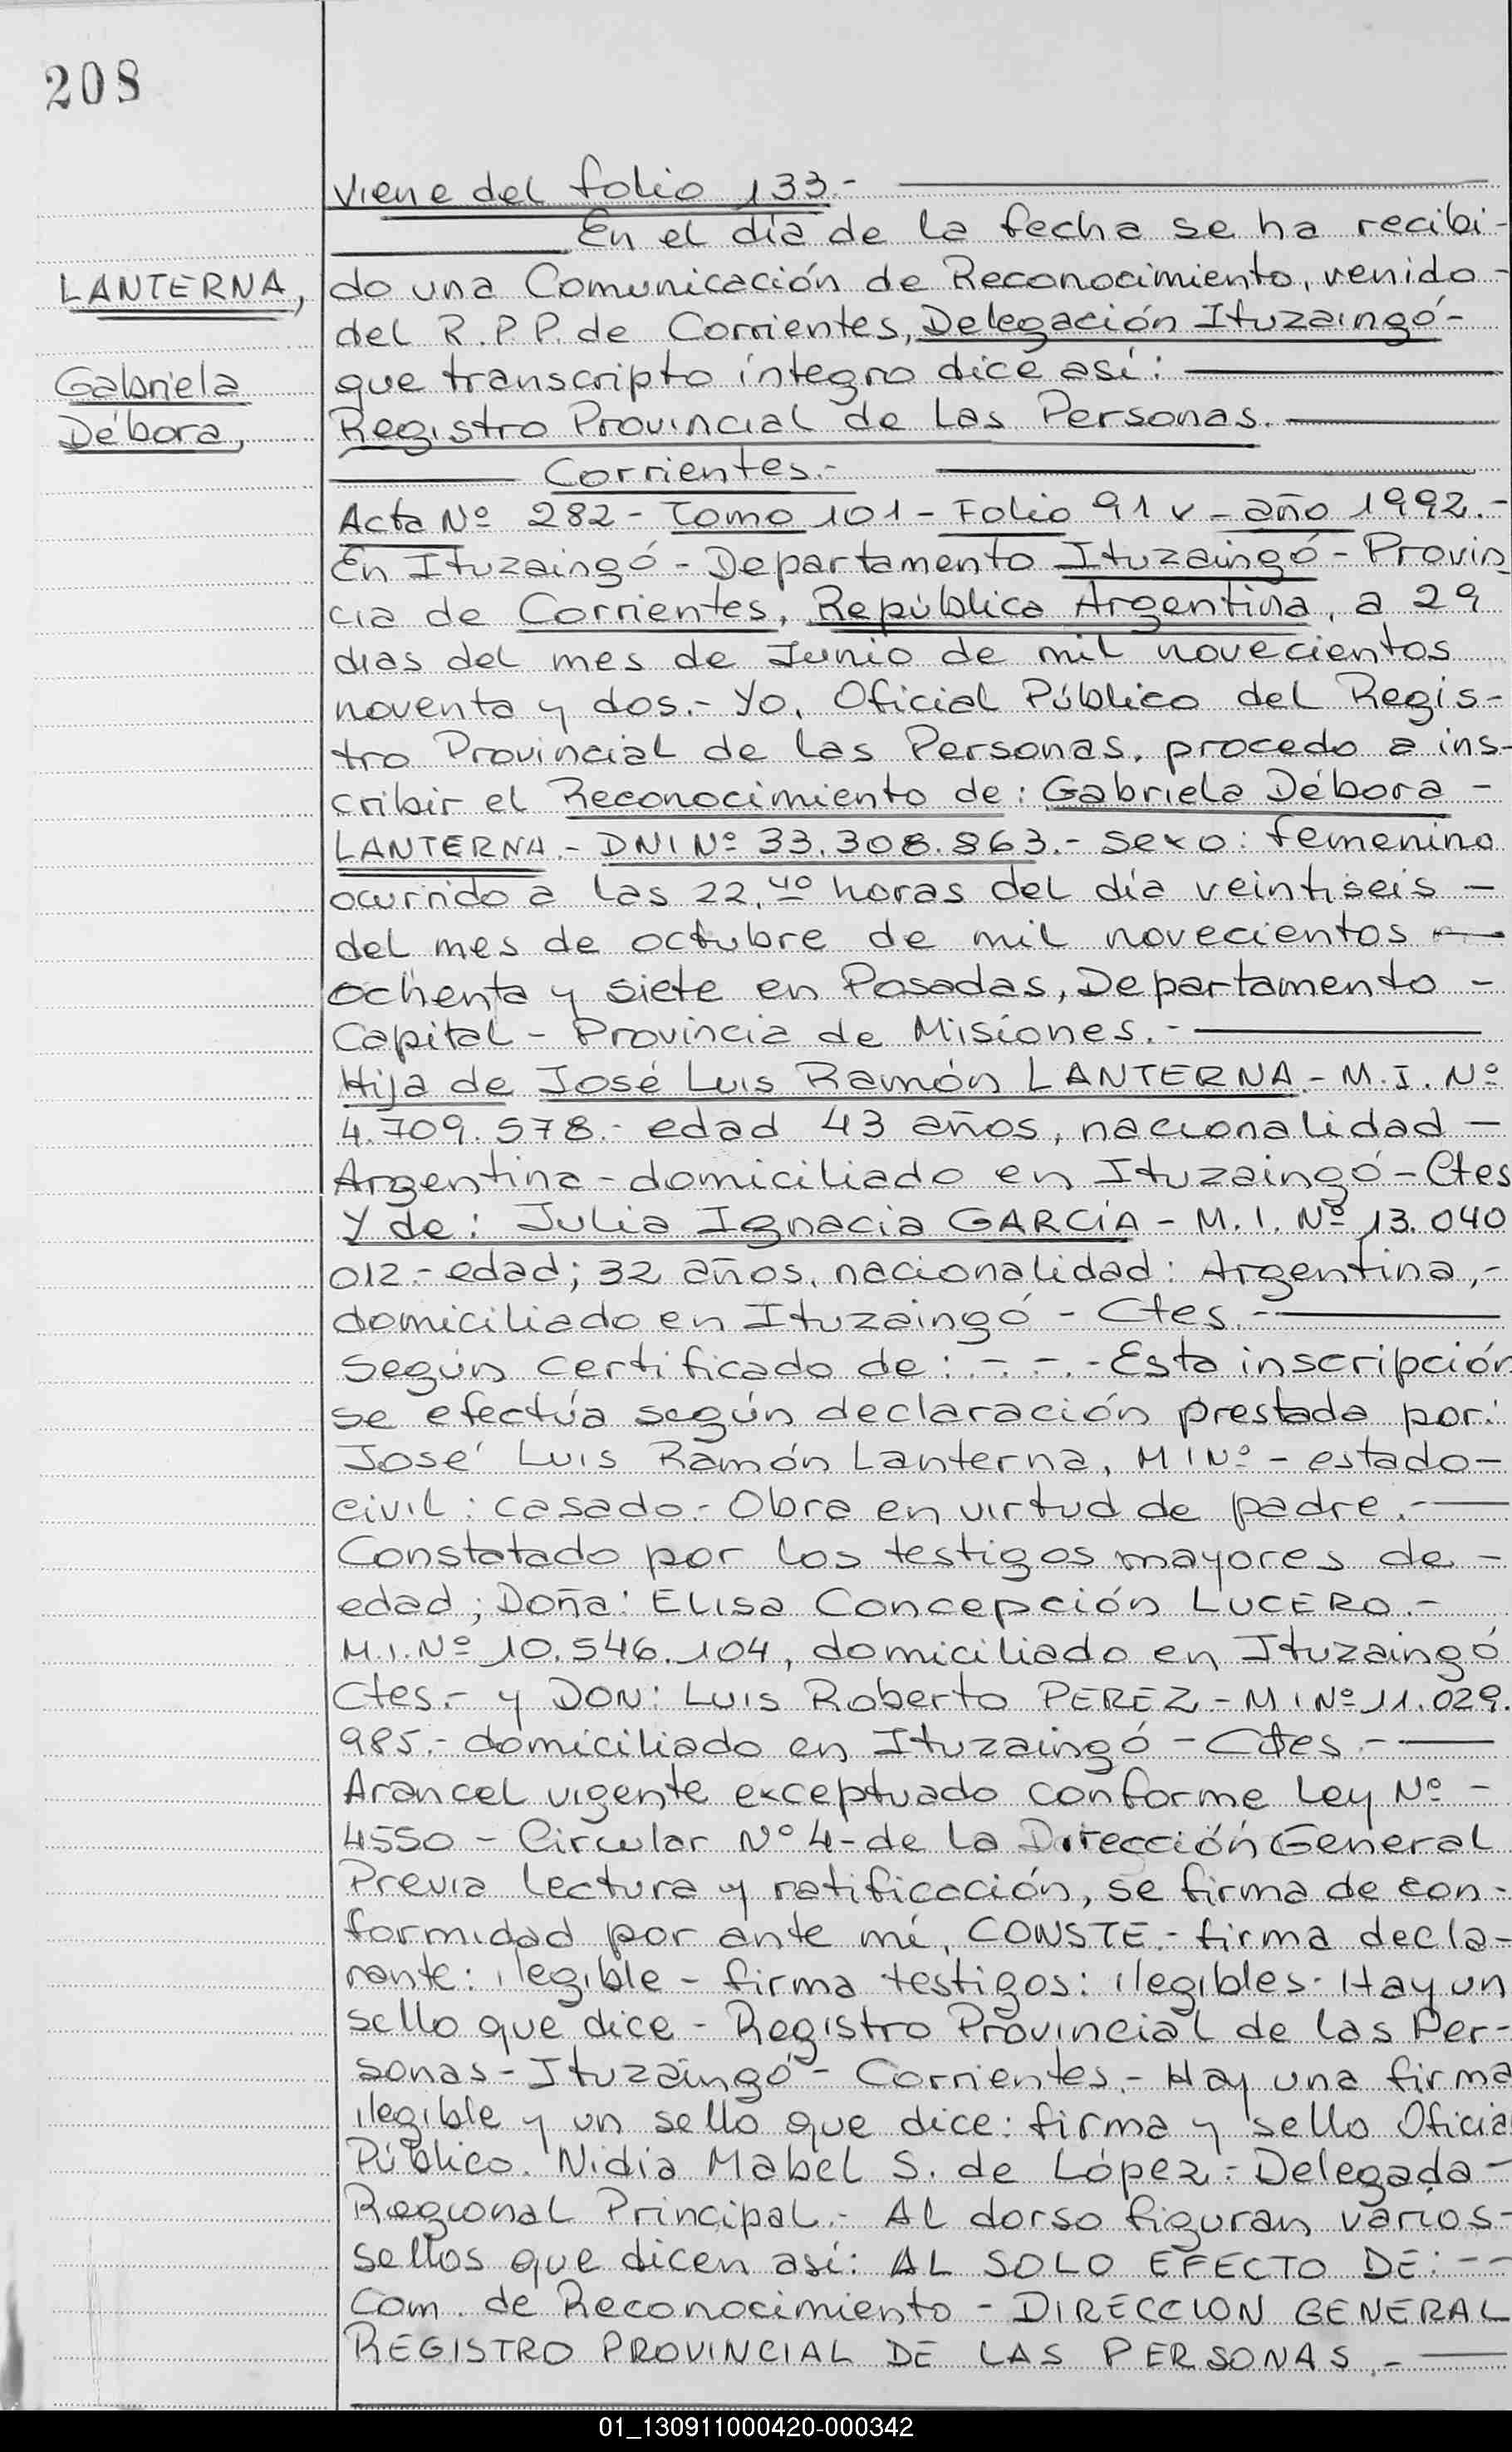 208
Viene del folio 133.-
En el día de la fecha se ha recibi-
LANTERNA,
do una Comunicación de Reconocimiento, venido-
del R.P.P. de Corrientes, Delegación Ituzaingó-
Gabriela
que transcripto íntegro dice así:
Débora,
Registro Provincial de Las Personas.
Corrientes.-
Acta Nº 282 - Tomo 101 - Folio 91 v - año 1992.-
En Ituzaingó - Departamento Ituzaingó - Provin
cia de Corrientes, República Argentina, a 29
dias del mes de Junio de mil novecientos
noventa y dos.- Yo, Oficial Público del Regis-
tro Provincial de las Personas, procedo a ins-
cribir el Reconocimiento de: Gabriela Débora -
LANTERNA.- DNI Nº 33.308.863.- sexo: femenino
ocurrido a las 22,40 horas del día veintiseis -
del mes de octubre de mil novecientos -
ochenta y siete en Posadas, Departamento -
Capital - Provincia de Misiones.-
Hija de José Luis Ramón LANTERNA - M.I. Nº
4.709.578.- edad 43 años, nacionalidad -
Argentina - domiciliado en Ituzaingó - Ctes
Y de: Julia Ignacia GARCÍA - M.I. Nº 13.040
012.- edad; 32 años, nacionalidad: Argentina,-
domiciliado en Ituzaingó - Ctes.-
Según certificado de: - - - Esta inscripción
se efectúa según declaración prestada por:
José Luis Ramón Lanterna, M I Nº - estado -
civil: casado.- Obra en virtud de padre.-
Constatado por los testigos mayores de -
edad; Doña: Elisa Concepción LUCERO.-
M.I. Nº 10.546.104, domiciliado en Ituzaingó
Ctes.- y DON: Luis Roberto PEREZ - M I Nº 11.029.
985.- domiciliado en Ituzaingó - Ctes.-
Arancel vigente exceptuado conforme Ley Nº -
4550 - Circular Nº 4 - de la Dirección General
Previa lectura y ratificación, se firma de con-
formidad por ante mí, CONSTE.- firma decla-
rante: ilegible - firma testigos: ilegibles. Hay un
sello que dice - Registro Provincial de las Per-
sonas - Ituzaingó - Corrientes.- Hay una firma
ilegible y un sello que dice: firma y sello Oficia
Público. Nidia Mabel S. de López - Delegada -
Regional Principal.- Al dorso figuran varios -
sellos que dicen así: AL SOLO EFECTO DE: - -
Com. de Reconocimiento - DIRECCION GENERAL
REGISTRO PROVINCIAL DE LAS PERSONAS.-
01_130911000420-000342